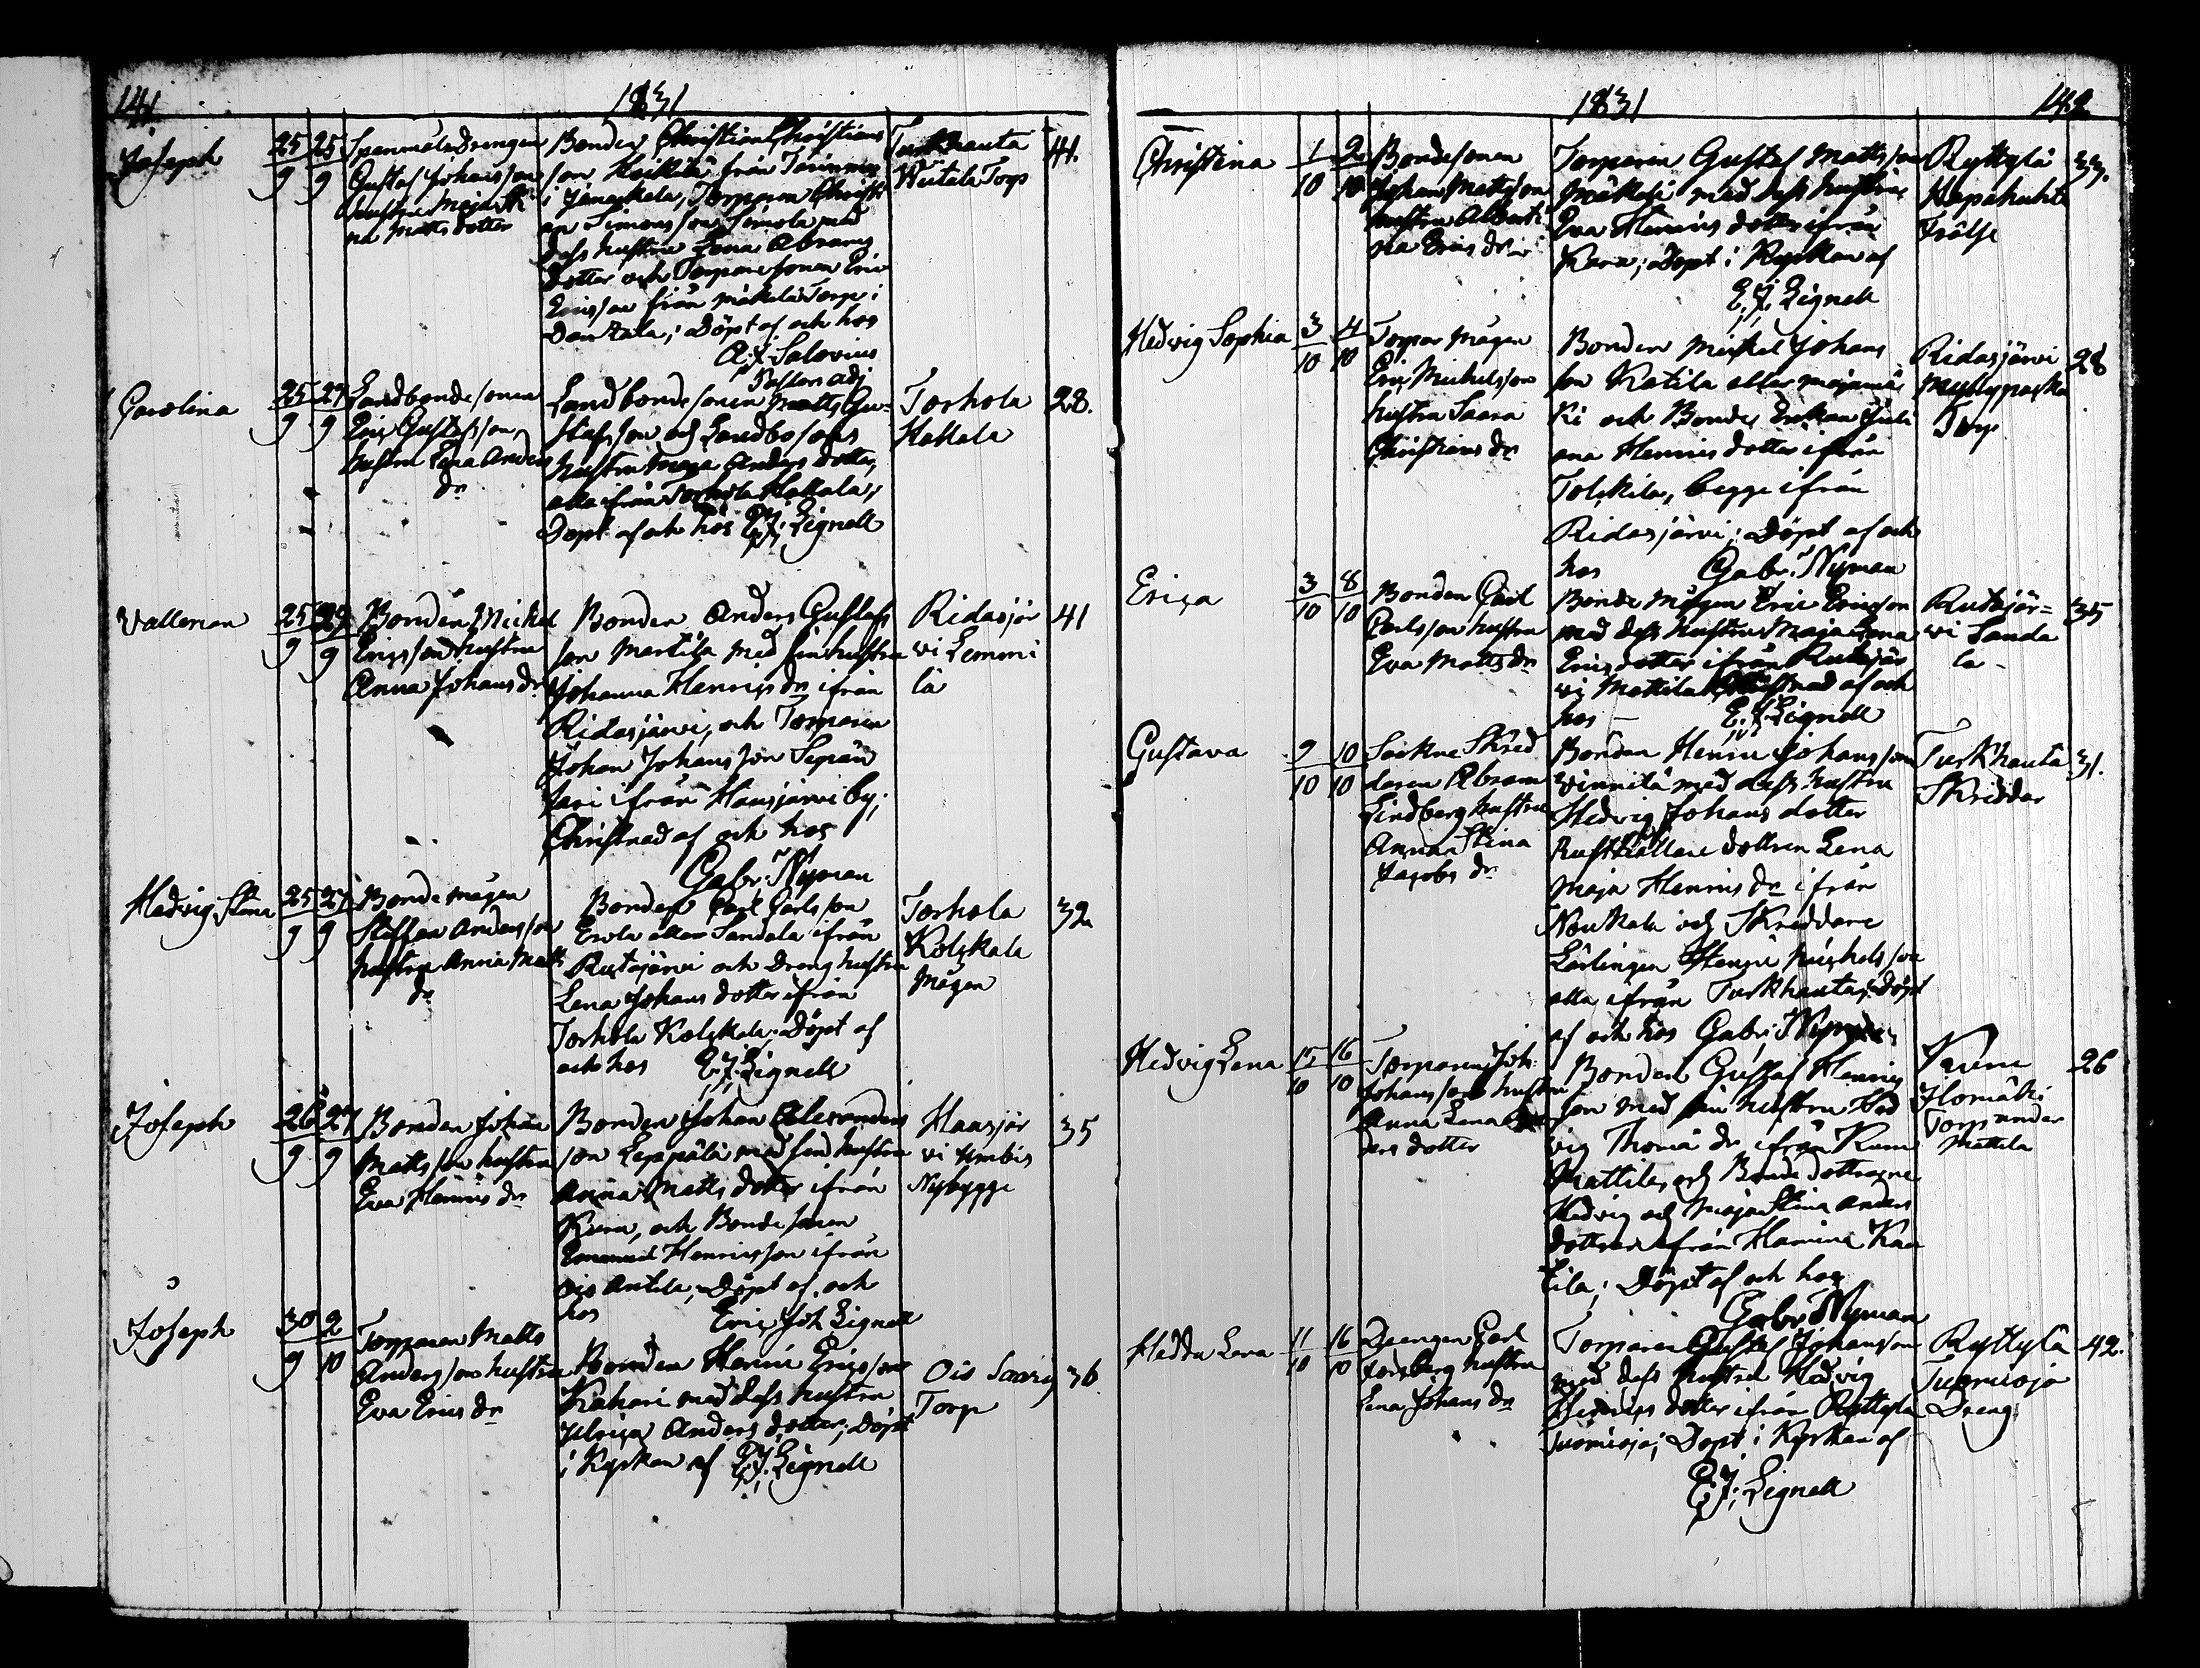 141 1831
Joseph 25/9 25/9
Spenmålsdrengen
Gustaf Johansson
hustru Maja Sti
na Matts dotter
Bonden Christian Christians
son Heikkilä från
i Janackala, Torparen Christi
an Simonsson Simola med
dess hustru Lena Abrams
dotter och Torparesonen Eric
Ericsson från Mäkelä Torp i
Vantala; Döpt af och hos
A. J. Salovius
Pastors adj
Turkhauta
Torp
41.
Carolina 25/9 27/9
Landbondesonen
Eric Gustafsson,
hustru Lena Anders
dr
Landbondesonen Matts Gu-
stafsson och Landbosons
hustru Maja Anders dotter,
alla ifrån Torhola Hakkala;
Döpt af och hos E. J. Lignell
Torhola
Hakkala
28.
Vallerian 25/9 29/9
Bonden Mickel
Ericsson hustru
Anna Johans dr
Bonden Anders Gustafs
son Martila med sin hustru
Johanna Henrics dr ifrån
Ridasjärvi, och Torparen
Johan Johansson Sepän
sari ifrån Hausjärvi by;
Christnad af och hos
Gabr: Nyman
Ridasjär
vi Lemmi
lä
41
Hedvig Stina 25/9 27/9
Bondemågen
Staffan Andersson
hustru Anna Matts
dr
Bonden Carl Carlsson
Erola eller Sandala ifrån
Rutajärvi och Dreng hustru
Lena Johans dotter ifrån
Torhola Kolkkala; Döpt af
och hos E. J. Lignell
Torhola
Kolkkala
Mågen
32
Joseph 26/9 27/9
Bonden Johan
Mattsson hustru
Eva Henrics dr
Bonden Johan Alexanders
son Leppälä med sin hustru
Anna Matts dotter ifrån
Karu, och Bondesonen
Emanuel Henricsson ifrån
Ois Antila; Döpt af och
hos Eric Joh Lignell
Hausjär
vi Umbis
Nybygge
35
Joseph 30/9 2/10
Torparen Matts
Andersson hustru
Eva Erics dr
Bonden Henric Ericsson
Kahari med dess hustru
Ulrica Anders dotter; Döpt
i Kyrkan af E. J. Lignell
Ois Saari
Torp
36
1831 142
Christina 1/10 2/10
Bondesonen
Johan Mattsson
hustru Alberti
na Erics dr
Torparen Gustaf Mattsson
Mäkelä med dess hustru
Eva Henrics dotter ifrån
Karu; Döpt i Kyrkan af
E. J. Lignell
Ryttylä
Hepohuhta
Frälse
33.
Hedvig Sophia 3/10 4/10
Torpar mågen
Eric Mickelsson
hustru Saara
Christians dr
Bonden Mickel Johans
son Kotila eller Mejamä
ki och Bonde Enkan Juli
ana Henrics dotter ifrån
Tolkkila, begge ifrån
Ridasjärvi; Döpt af och
hos Gabr: Nyman
Ridasjärvi
Torp
28
Erica 3/10 8/10
Bonden Carl
Carlsson hustru
Eva Matts dr
Bonde mågen Eric Ericsson
med dess hustru Maja Lena
Erics dotter ifrån Rutajär
vi Mattila Christnad af och
hos – E. J. Lignell
Rutajär=
vi Sanda
la –
35
Gustava 9/10 10/10
Sockne Skred
daren Abram
Lindberg hustru
Anna Stina
Jacobs dr
Bonden Henric Johansson
Vinnilä med dess hustru
Hedvig Johans dotter
Rusthållare dottren Lena
Maja Henrics dr ifrån
Noukala och Skreddare
Lärlingen Henric Michelsson
alla ifrån Turkhauta; Döpt
af och hos Gabr: Nyman
Turkhauta
Skreddar
31.
Hedvig Lena 15/10 16/10
Torparen Joh:
Johansson hustru
Anna Lena An
ders dotter
Bonden Gustaf Henrics
son med sin hustru Hed
vig Thomæ dr ifrån Karu
Mattila, och Bonde dottrarne
Hedvig och Maja Stina Anders
dottrar ifrån Hamina Kau
tila; Döpt af och hos
Gabr Nyman
Karu
Hornäki
Torp under
Mattila
26
Hedda Lena 11/10 16/10
Drengen Carl
Forsberg hustru
Lena Johans dr
Torparen Gustaf Johansson
med dess hustru Hedvig
Henrics dotter ifrån Ryttylä
Tuomioja; Döpt i Kyrkan af
E. J. Lignell
Ryttylä
Tuomioja
Dreng
42.